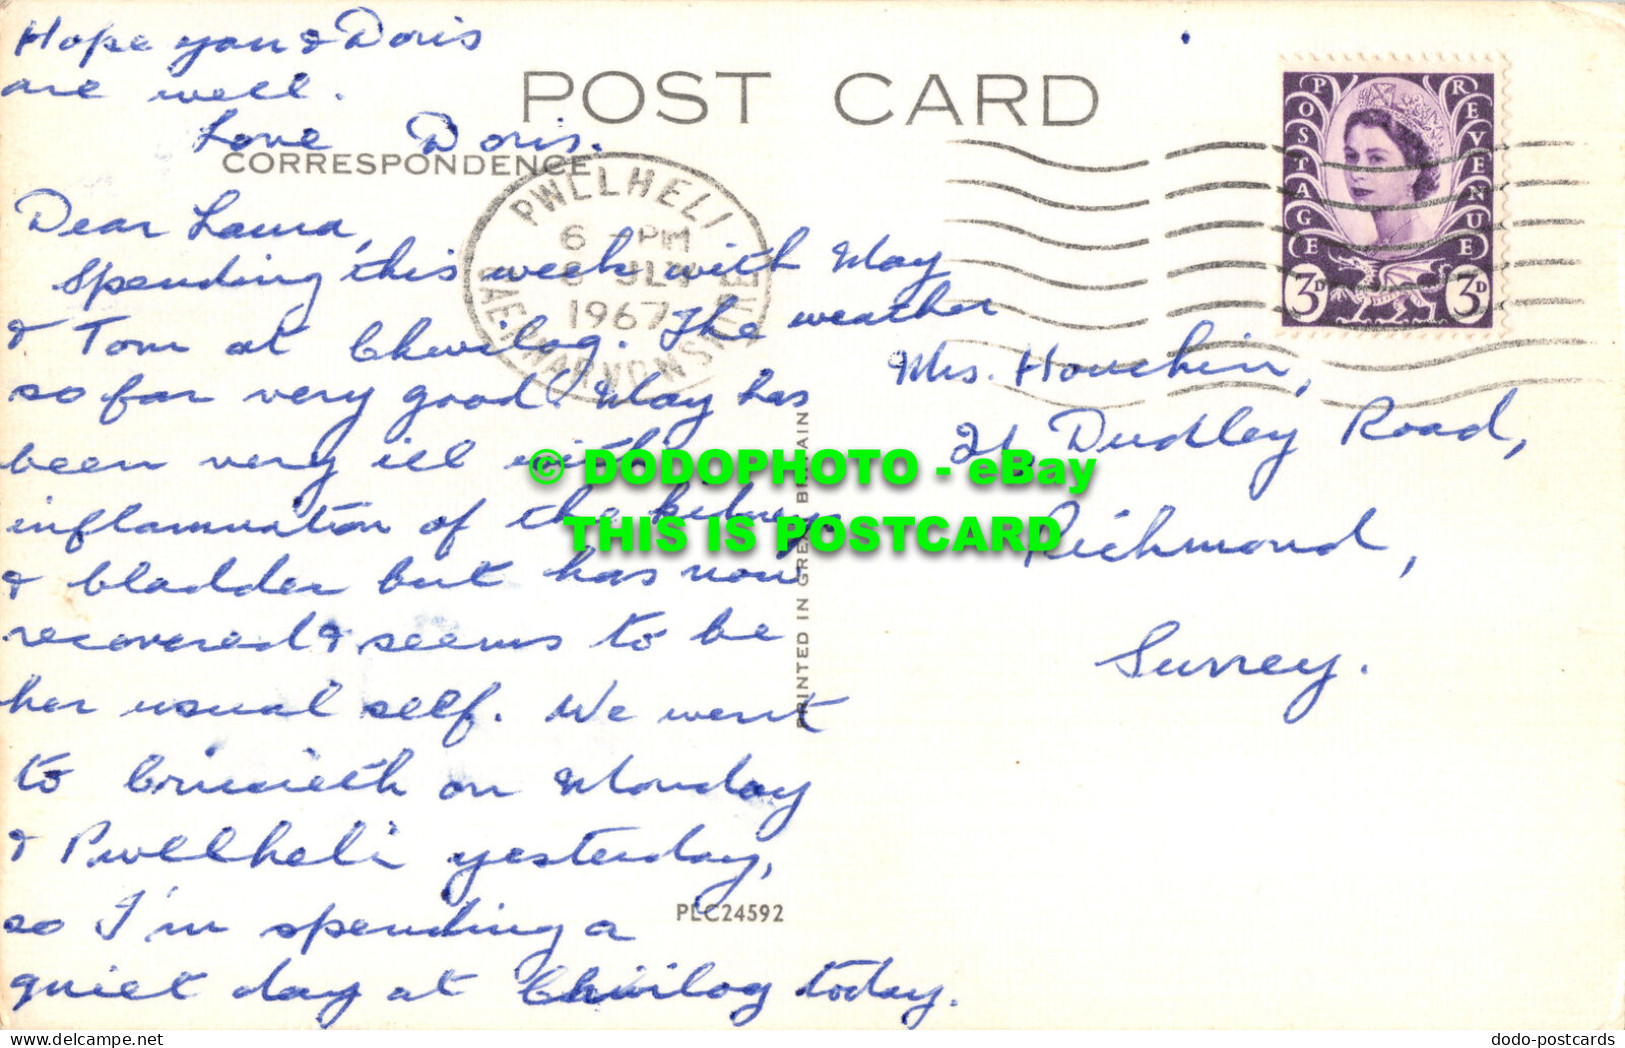 Hope you & Doris
are well.
Love Doris.
POST CARD
CORRESPONDENCE
PWLLHELI
6 - PM
5 JLY
1967
CAERNARVONSHIRE
POSTAGE
REVENUE
3D
3D
Dear Laura,
Spending this week with May
& Tom at Chwilog. The weather
so far very good. May has
been very ill with
inflammation of the kidneys
& bladder but has now
recovered & seems to be
her usual self. We went
to Criccieth on Monday
& Pwllheli yesterday,
so I'm spending a
quiet day at Chwilog today.
Mrs. Houchin,
Dudley Road,
Richmond,
Surrey.
PRINTED IN GREAT BRITAIN
PLC24592
© DODOPHOTO - eBay
THIS IS POSTCARD
dodo-postcards